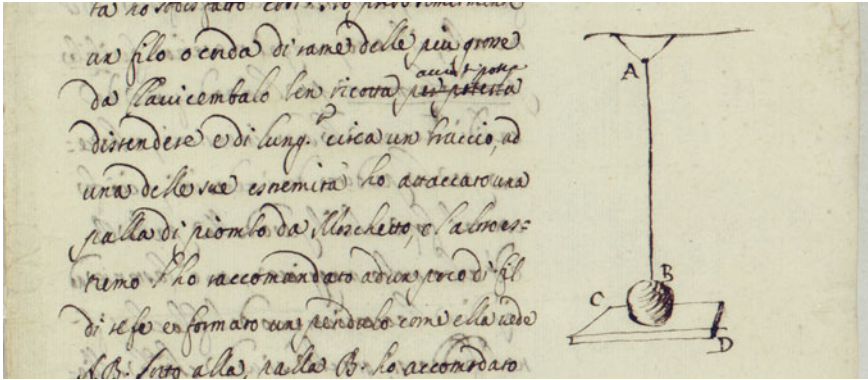 ta ho sodisfatto così. Ho preso
un filo o corda di rame delle piu grosse
da Clavicembalo ben ricotta acciò si possa per poterla
distendere e di lung.ª circa un braccio, ad
una delle sue estremità ho attaccato una
palla di piombo da Moschetto, e l'altro es=
tremo l'ho raccomandato ad un poco di fil
di refe e formato un pendolo come ella vede
A B. sotto alla palla B. ho accomodato
A
B
C
D